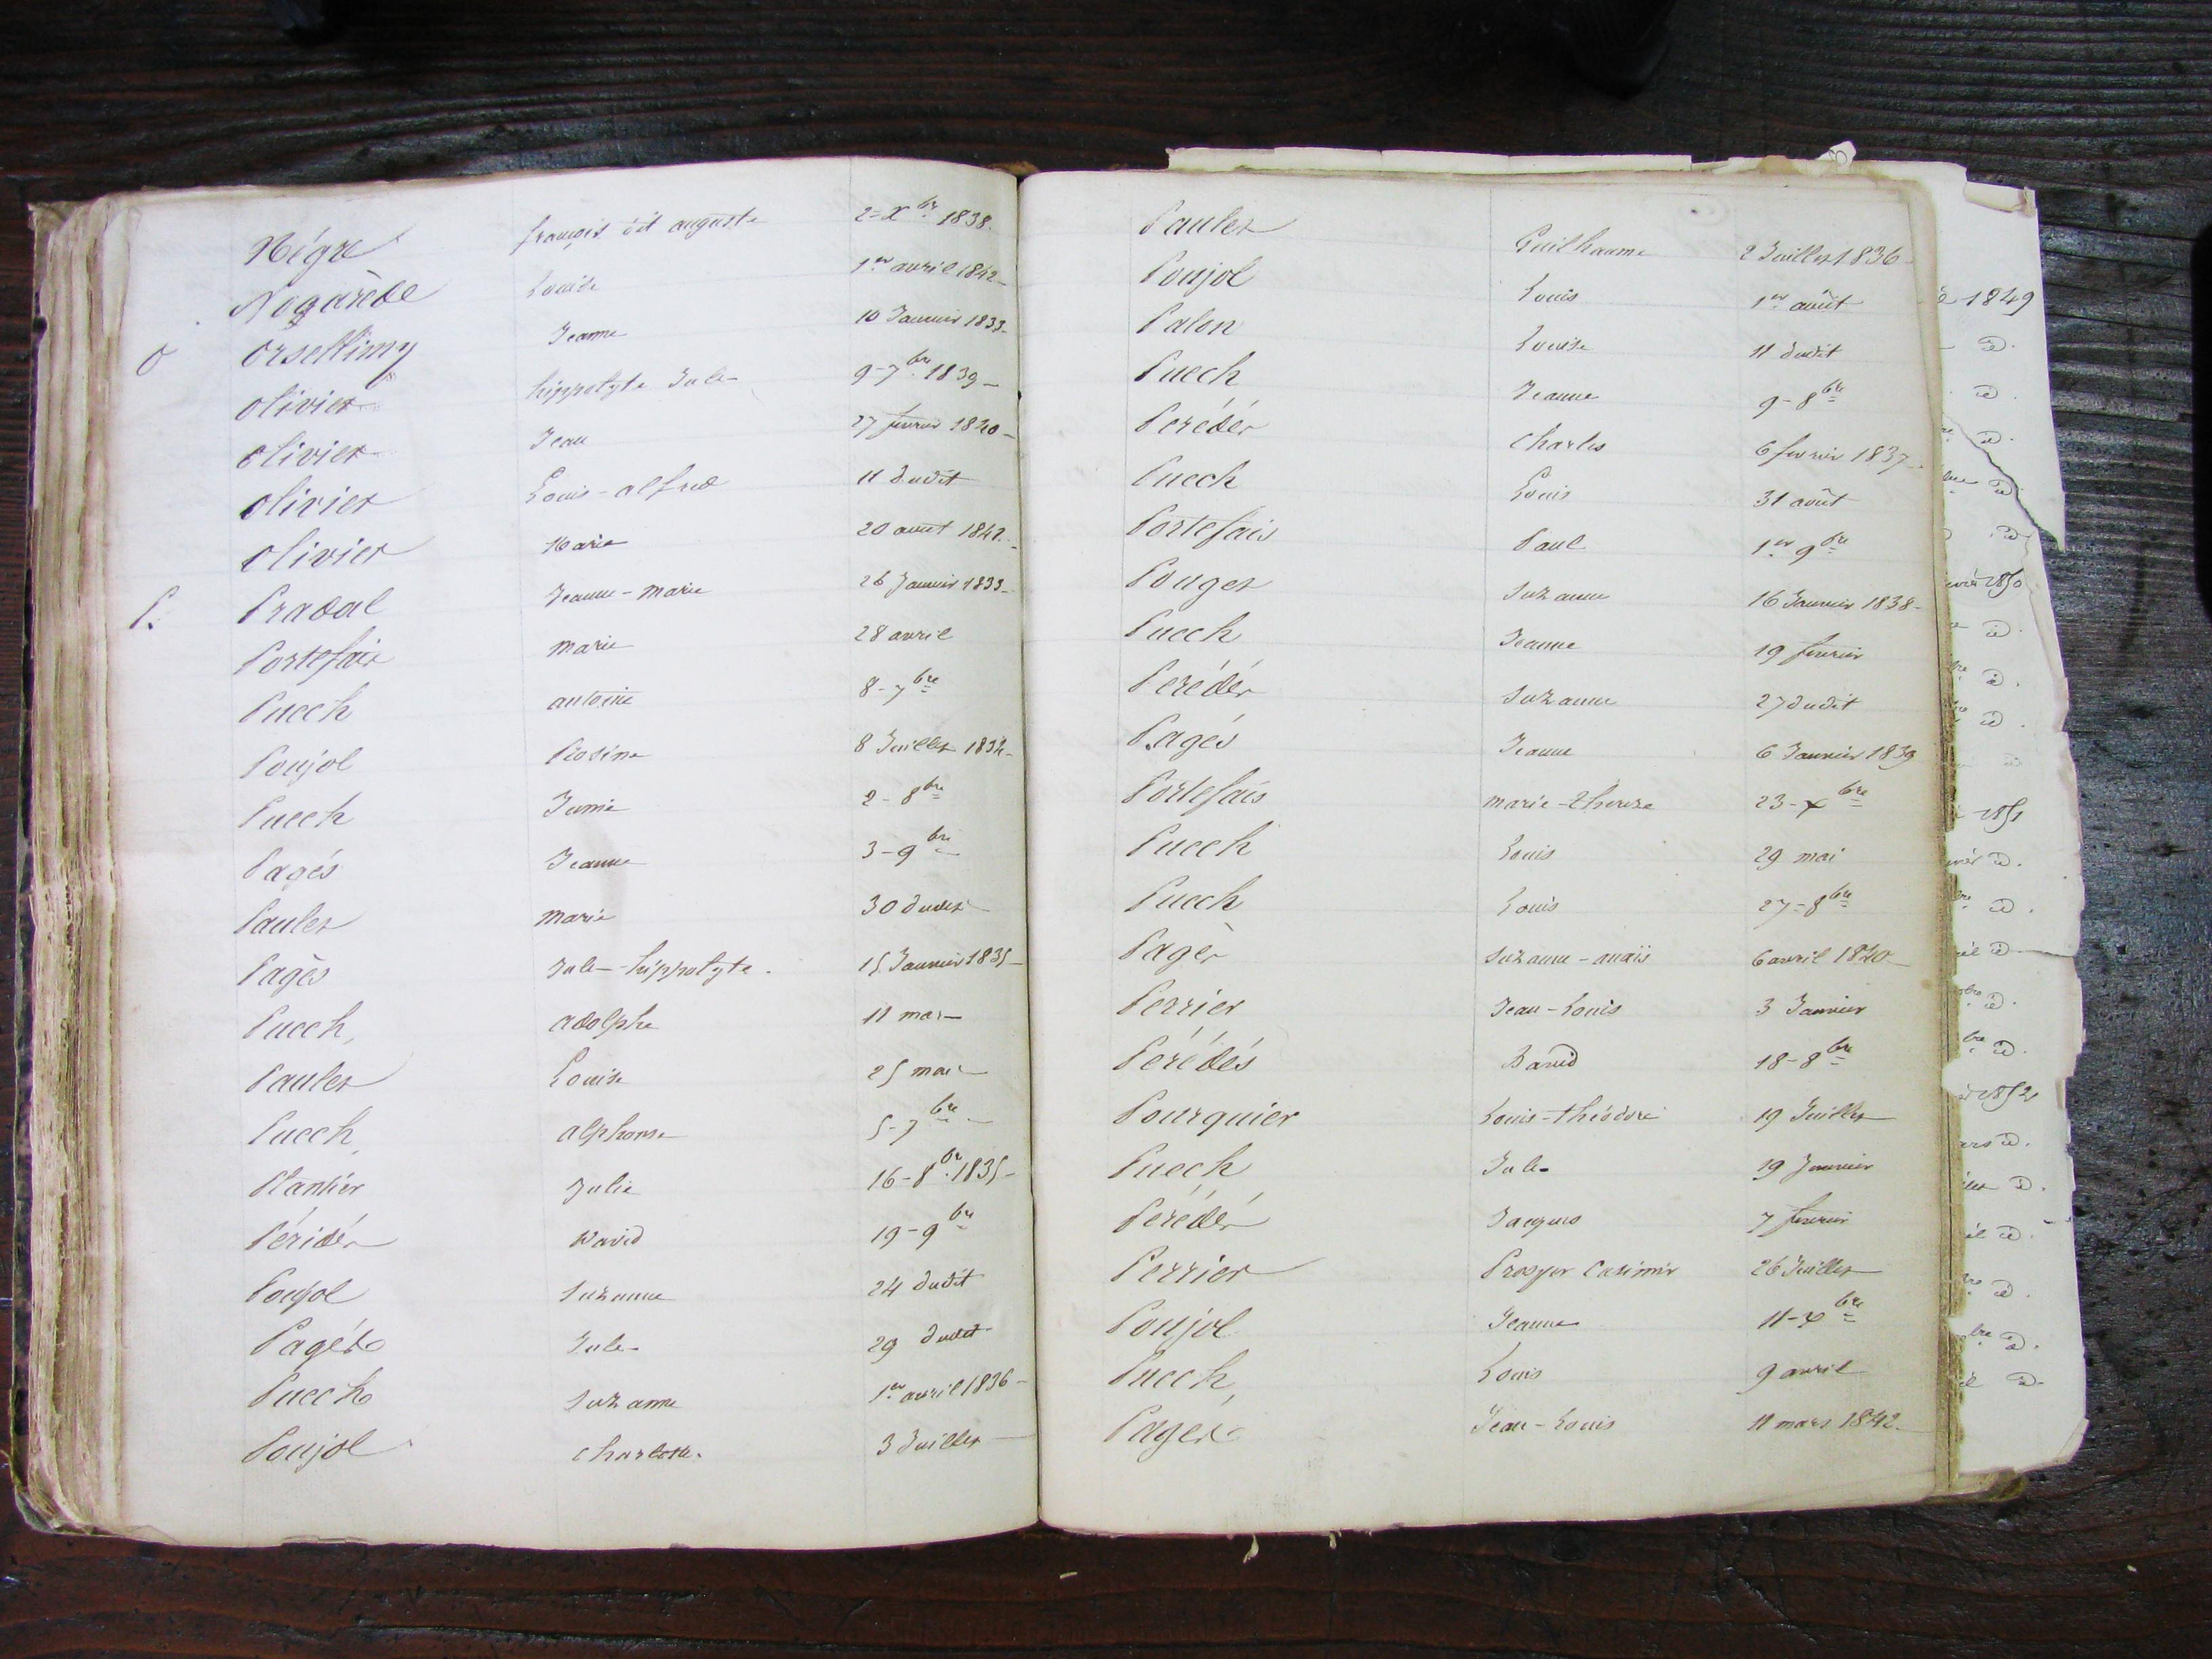 Négre françois dit auguste 2=Xbre 1838.
Nogarède Louise 1er avril 1842
O Orsettimy Jeanne 10 Janvier 1833
olivier hippolyte Jule 9-7bre 1839
olivier Jean 27 fevrier 1840
olivier Louis-alfred 11 dudit
olivier Marie 20 aout 1842
P. Pradal Jeanne-Marie 26 Janvier 1833
Portefaix Marie 28 avril
Puech antoine 8-7bre
Poujol Rosine 8 Juillet 1834
Puech 2-8bre
Pagés Jeanne 3-9bre
Paulet Marie 30 dudit
Pagès Jule-hippolyte. 15 Janvier 1835
Puech, adolphe 11 mar
Paulet Louise 25 mai
Puech, alphonse 5-7bre
Plantier Julie 16-8bre 1835
Péridér David 19-9bre
Poujol Suzanne 24 dudit
Pagés Jule 29 dudit
Puech Suzanne 1er avril 1836
Poujol Charlotte. 3 Juillet
Paulet Guilhaume 2 Juillet 1836
Poujol Louis 1er août
Palon Louise 11 dudit
Puech Jeanne 9-8bre
Perédér Charles 6 fevrier 1837
Puech Louis 31 août
Portefais Paul 1er 9bre
Pouget Suzanne 16 Janvier 1838
Puech Jeanne 19 fevrier
Perédér Suzanne 27 dudit
Pagés Jeanne 6 Janvier 1839
Portefais marie-therese 23-xbre
Puech Louis 29 mai
Puech Louis 27-8bre
Pagès Suzanne-anaïs 6 avril 1840
Perrier Jean-Louis 3 Janvier
Perédés David 18-8bre
Pourquier Louis-théodore 19 Juillet
Puech Jule 19 Janvier
Perédér Jacques 7 fevrier
Perrier Prosper Casimir 26 Juillet
Poujol Jeanne 11-xbre
Puech, Louis 9 avril
Pagés Jean-Louis 11 mars 1842
1849
1850
1851
1852